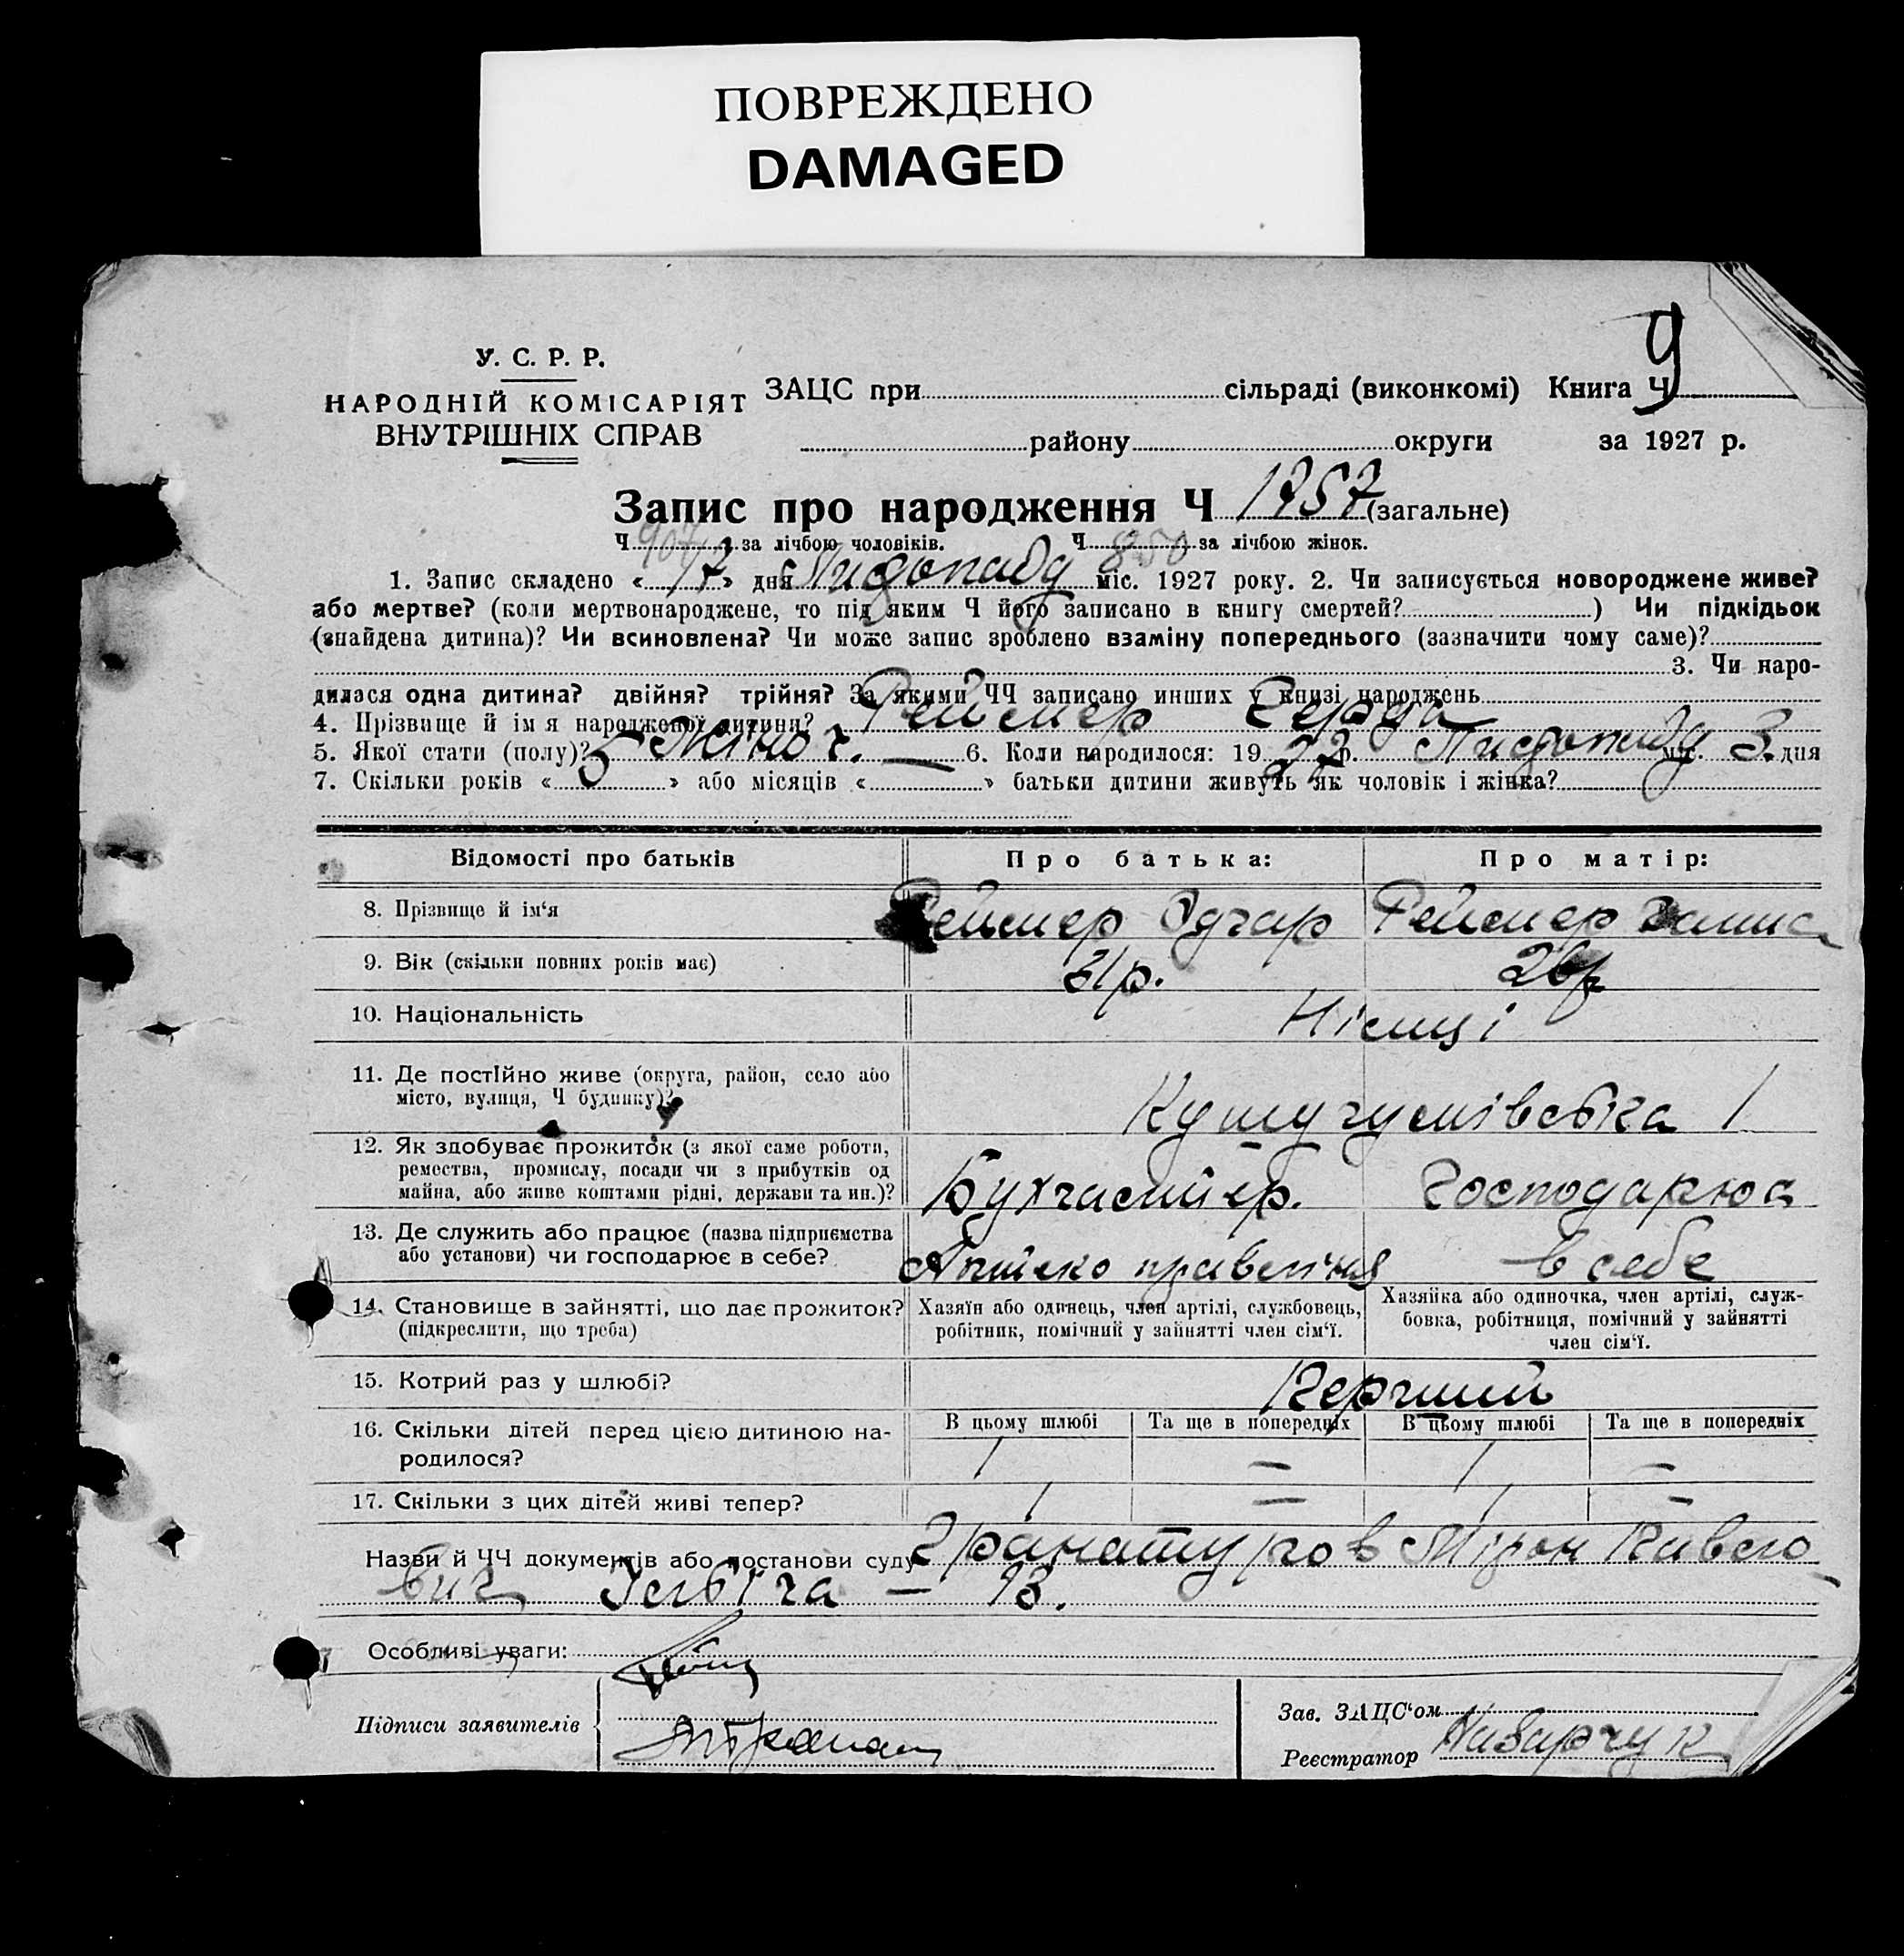 ПОВРЕЖДЕНО
DAMAGED
У. С. Р. Р.
НАРОДНІЙ КОМІСАРІЯТ
ВНУТРІШНІХ СПРАВ
ЗАЦС при сільраді (виконкомі) Книга Ч 9
району округи за 1927 р.
Запис про народження Ч 1757 (загальне)
Ч 907 за лічбою чоловіків. Ч 850 за лічбою жінок.
1. Запис складено « 17 » дня Листопаду міс. 1927 року. 2. Чи записується новороджене живе?
або мертве? (коли мертвонароджене, то під яким Ч його записано в книгу смертей? ) Чи підкідьок
(знайдена дитина)? Чи всиновлена? Чи може запис зроблено взаміну попереднього (зазначити чому саме)?
3. Чи наро-
дилася одна дитина? двійня? трійня? За якими ЧЧ записано инших у книзі народжень
4. Прізвище й ім я народженої дитини? Реймер Герда
5. Якої стати (полу)? Жіноч. 6. Коли народилося: 19 27 р. Листопаду міс. 3 дня
7. Скільки років « 5 » або місяців « — » батьки дитини живуть як чоловік і жінка?
Відомості про батьків Про батька: Про матір:
8. Прізвище й ім'я Реймер Едгар Реймер
9. Вік (скільки повних років має) 31 р. 26 р
10. Національність Німці
11. Де постійно живе (округа, район, село або
місто, вулиця, Ч будинку)? 1
12. Як здобуває прожиток (з якої саме роботи,
ремества, промислу, посади чи з прибутків од
майна, або живе коштами рідні, держави та ин.)? Бухгалтер. Господарює
13. Де служить або працює (назва підприємства
або установи) чи господарює в себе? в себе
14. Становище в зайнятті, що дає прожиток?
(підкреслити, що треба)
Хазяїн або одинець, член артілі, службовець,
робітник, помічний у зайнятті член сім'ї.
Хазяйка або одиночка, член артілі, служ-
бовка, робітниця, помічний у зайнятті
член сім'ї.
15. Котрий раз у шлюбі? Перший
В цьому шлюбі Та ще в попередніх В цьому шлюбі Та ще в попередніх
16. Скільки дітей перед цією дитиною на-
родилося? 1 — 1 —
17. Скільки з цих дітей живі тепер? 1 — 1 —
Назви й ЧЧ документів або постанови суду
— 13.
Особливі уваги:
Підписи заявителів
Зав. ЗАЦС'ом
Реєстратор Назарчук